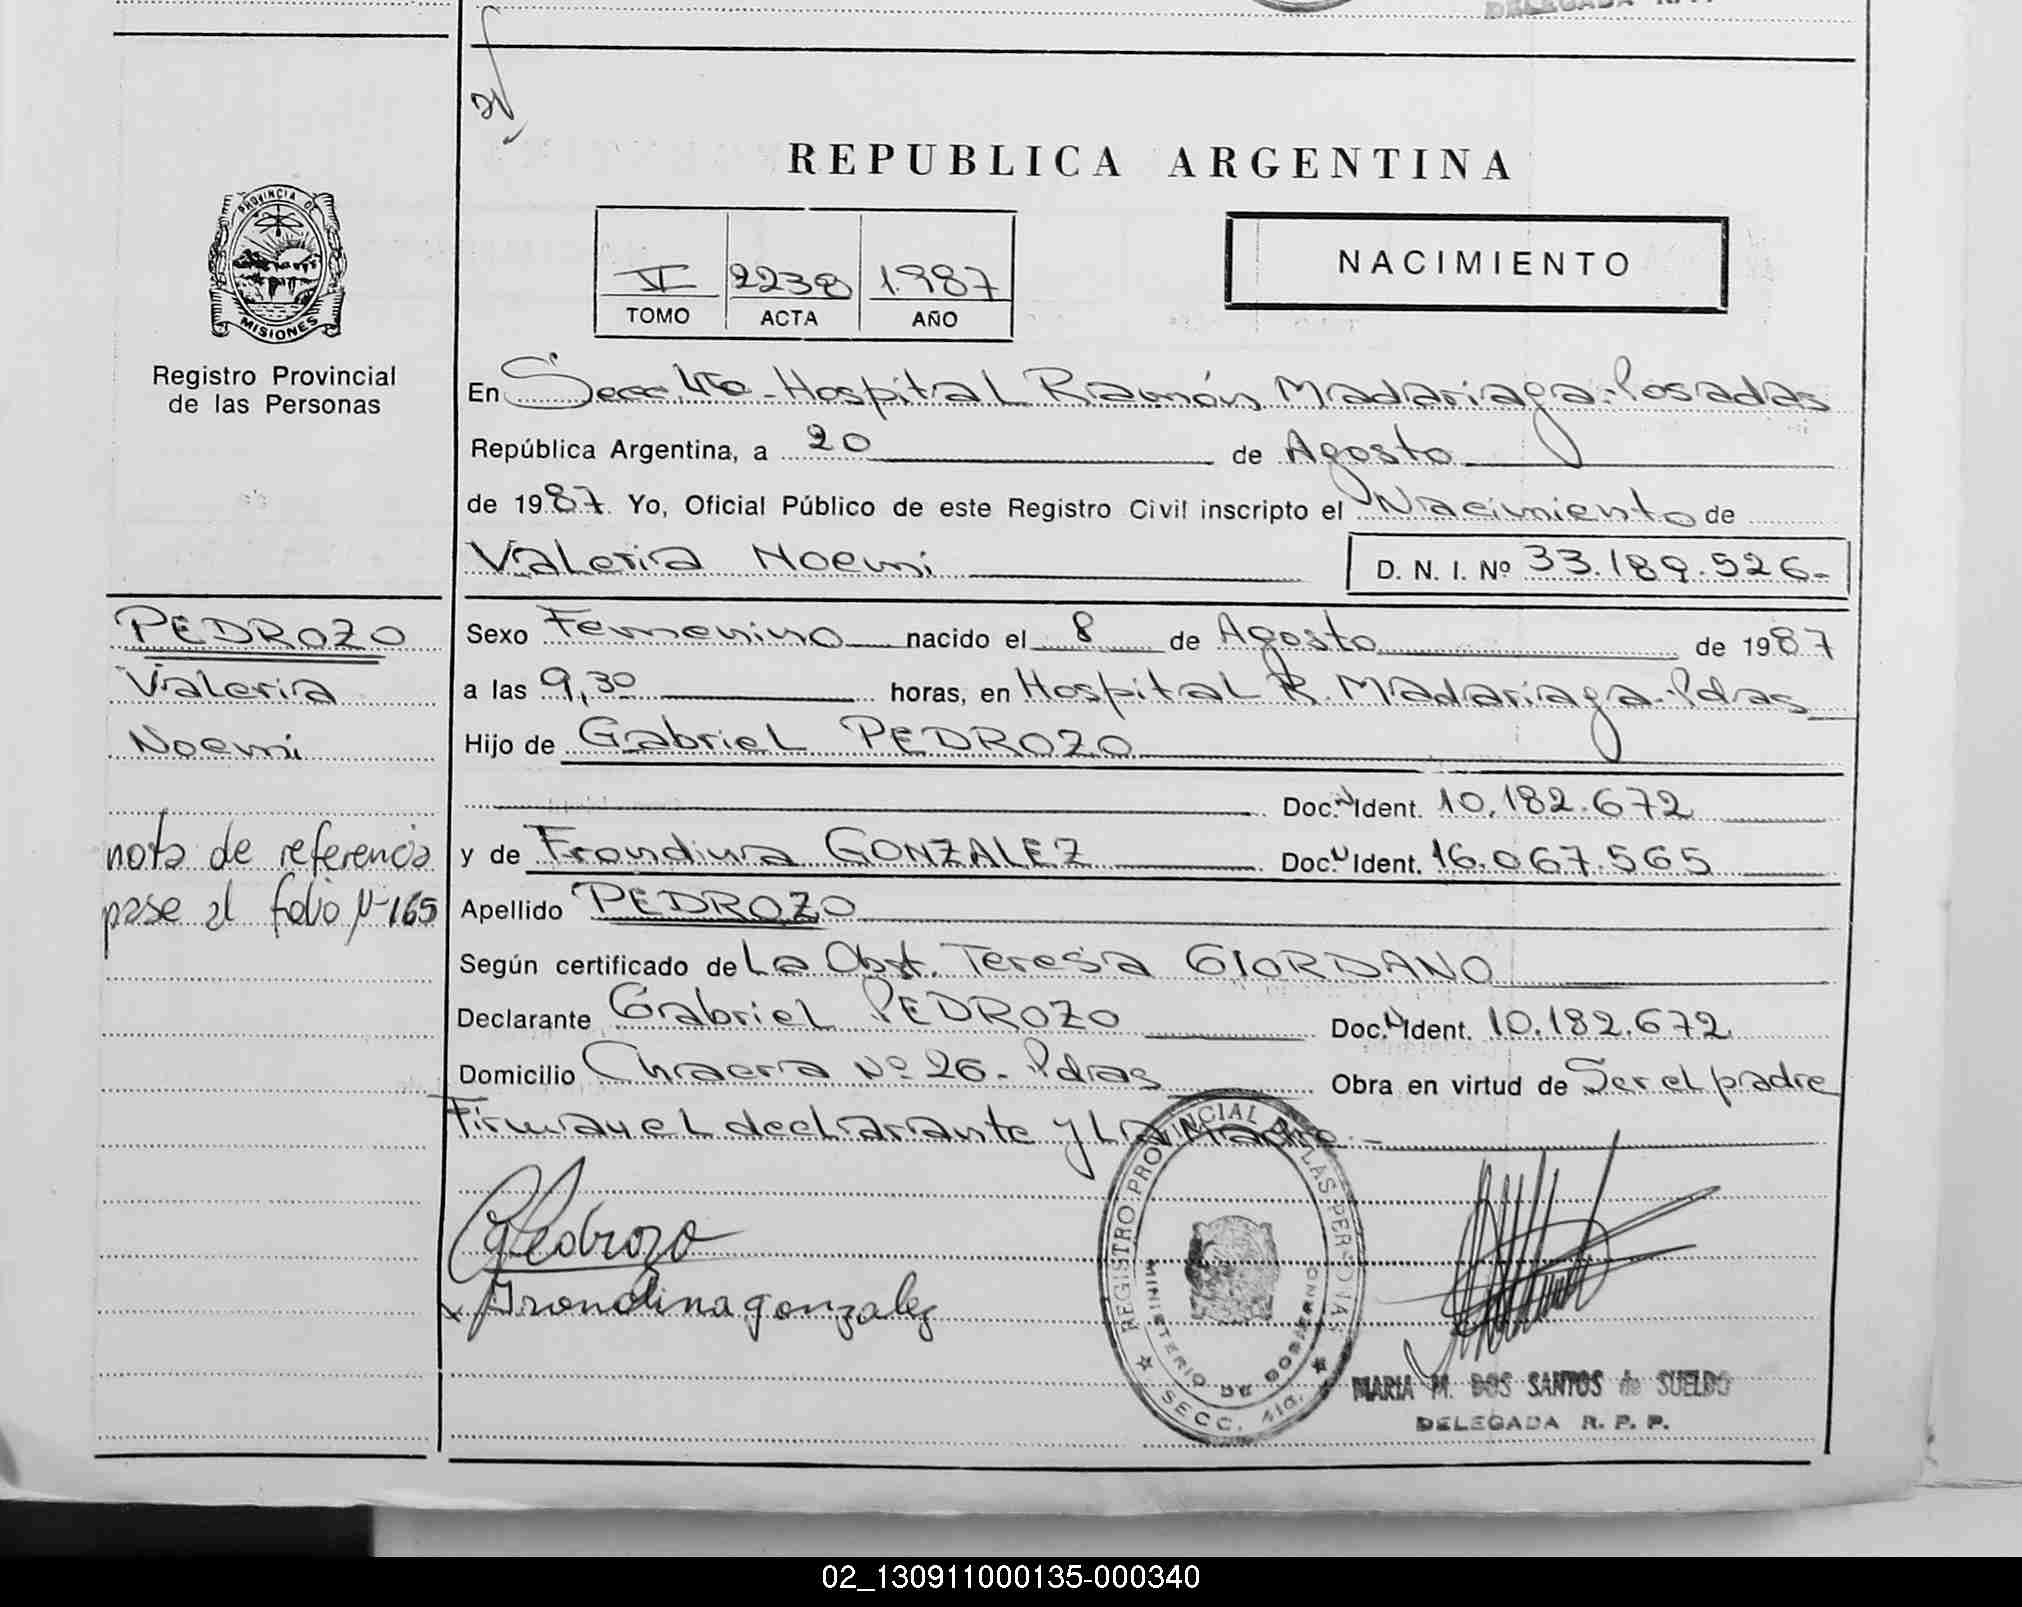 DELEGADA R.P.P.
REPUBLICA ARGENTINA
PROVINCIA DE
MISIONES
V 2238 1987
TOMO ACTA AÑO
NACIMIENTO
Registro Provincial
de las Personas
En Secc. 4ta - Hospital Ramón Madariaga - Posadas
República Argentina, a 20 de Agosto
de 1987. Yo, Oficial Público de este Registro Civil inscripto el Nacimiento de
Valeria Noemi
D. N. I. Nº 33.189.526-
PEDROZO
Valeria
Noemi
nota de referencia
pase al folio Nº 165
Sexo Femenino nacido el 8 de Agosto de 1987
a las 9,30 horas, en Hospital R. Madariaga - Pdas
Hijo de Gabriel PEDROZO
Doc. N Ident. 10.182.672
y de Frondina GONZALEZ Doc. U Ident. 16.067.565
Apellido PEDROZO
Según certificado de La Obst. Teresa GIORDANO
Declarante Gabriel PEDROZO Doc. N Ident. 10.182.672
Domicilio Chacra Nº 26 - Pdas Obra en virtud de Ser el padre
Firman el declarante y La Madre. -
REGISTRO PROVINCIAL DE LAS PERSONAS
MINISTERIO DE GOBIERNO
SECC. 4ta.
GPedrozo
Frondina gonzalez
MARIA M. DOS SANTOS de SUELDO
DELEGADA R. P. P.
02_130911000135-000340